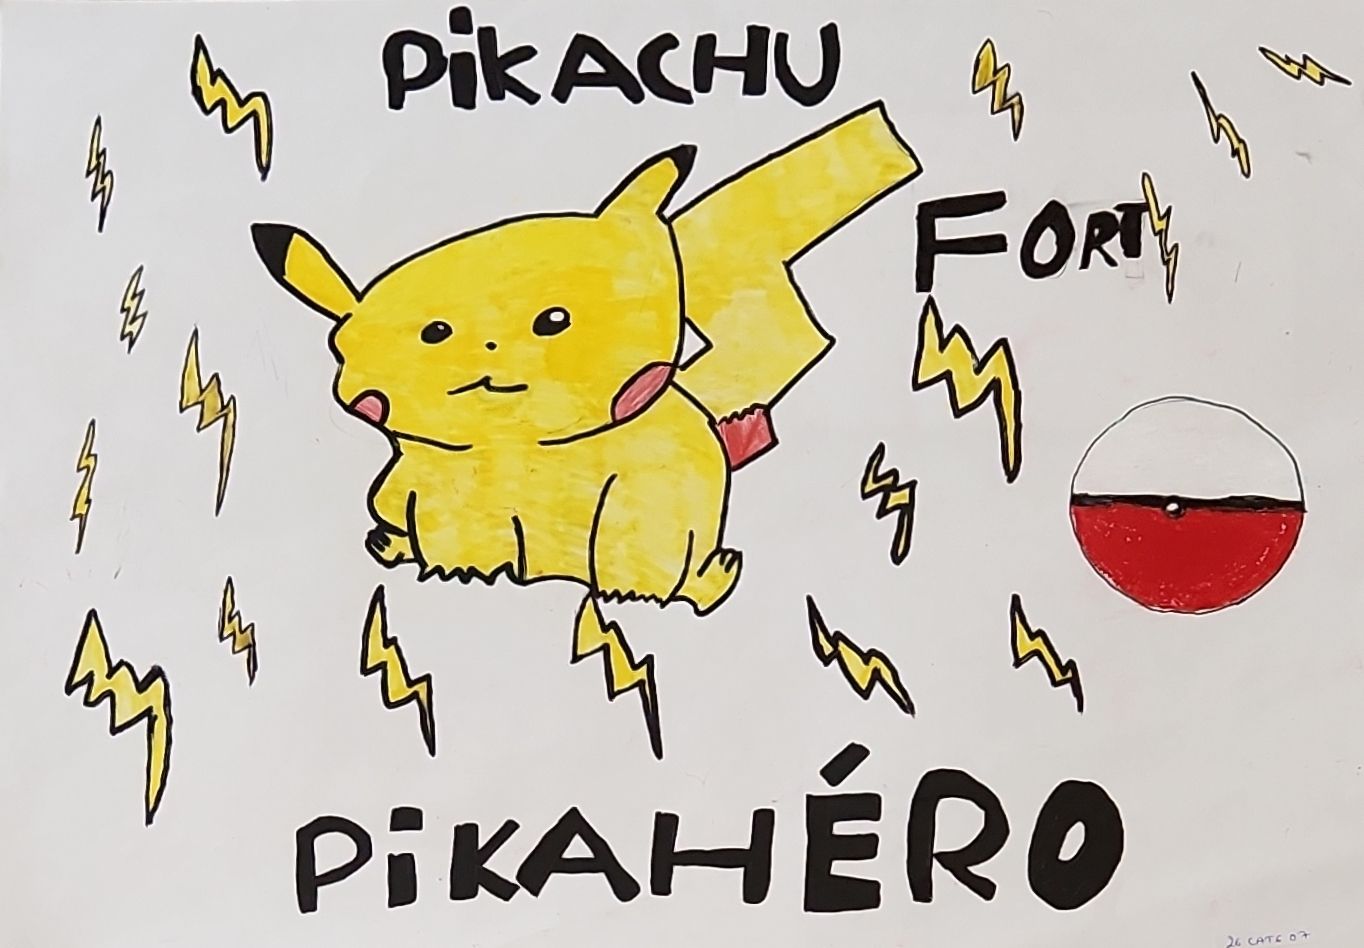 PiKACHU
FORT
PiKAHÉRO
26 CATS 07